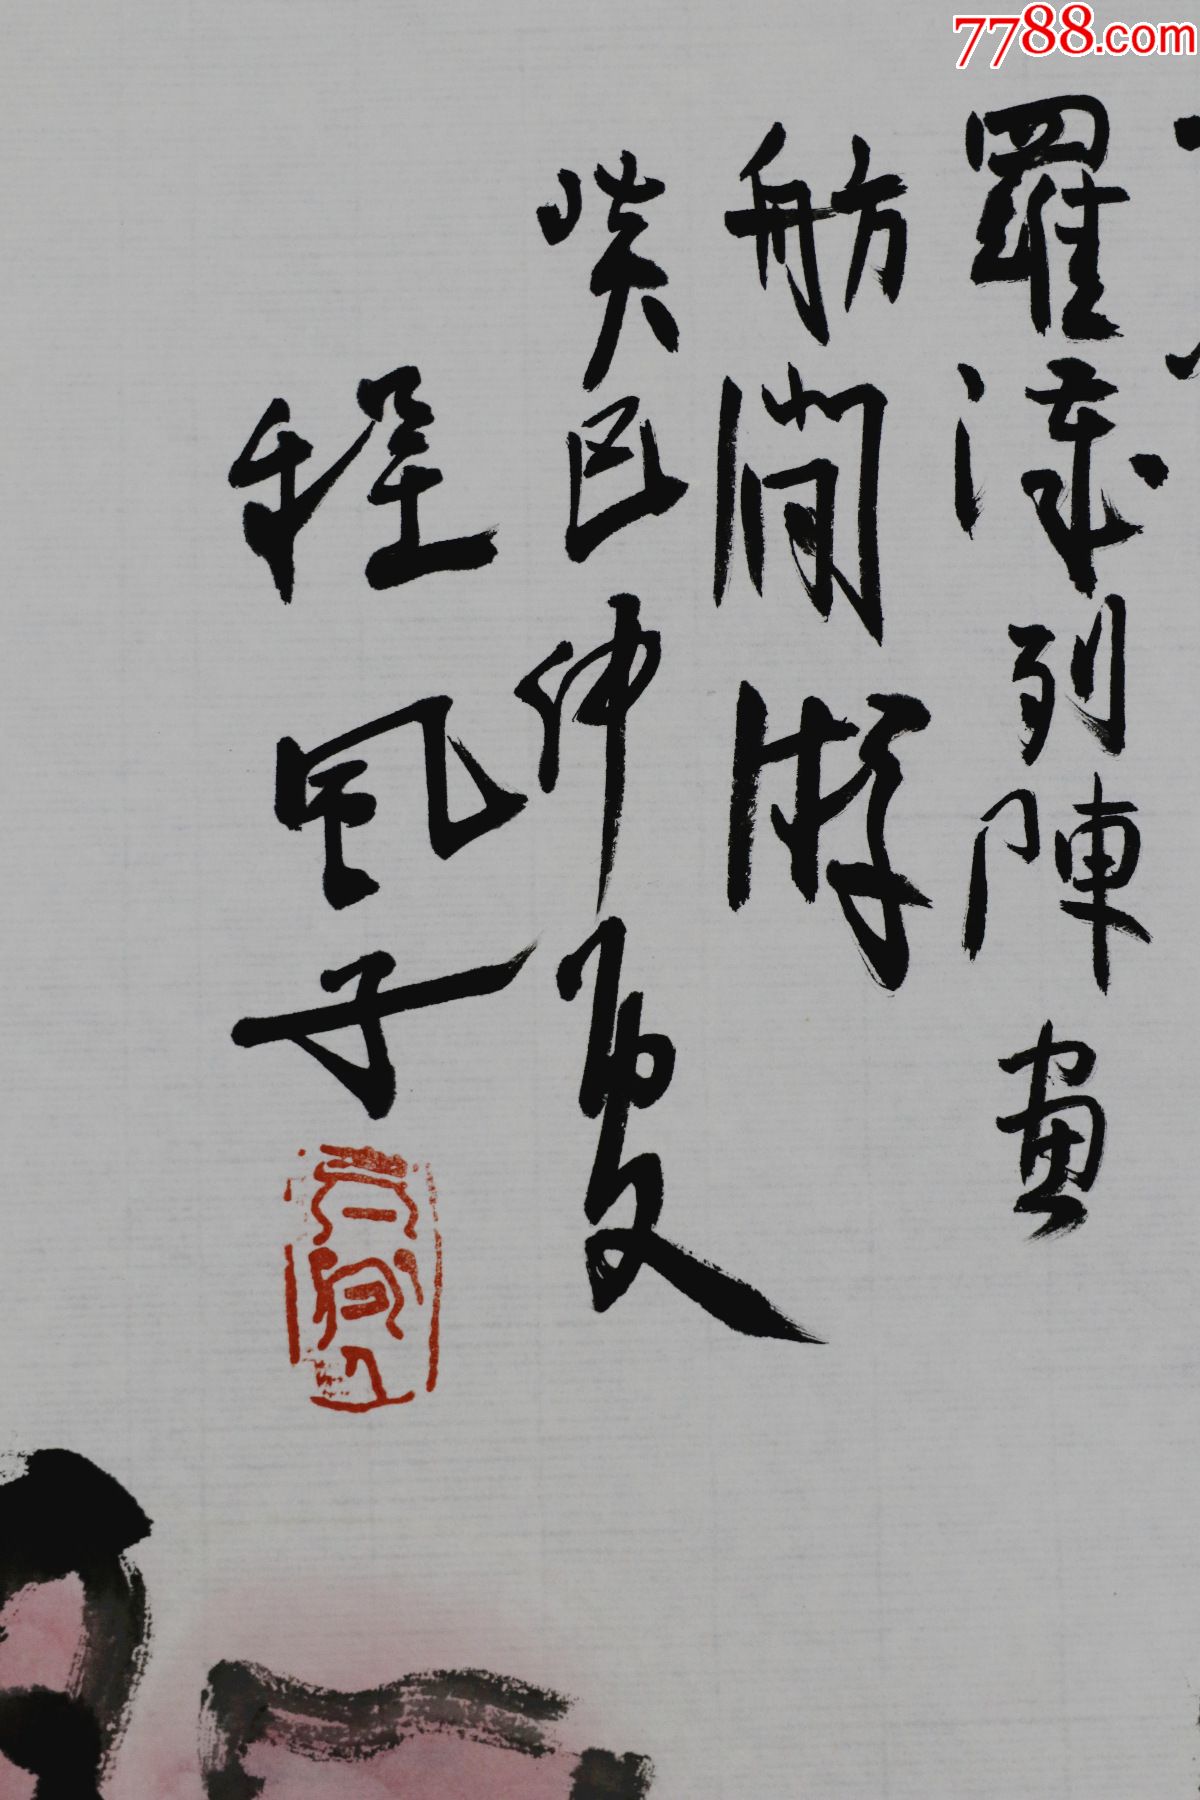 7788.com
羅列陣畫
舫間游
癸巳仲夏
程風子